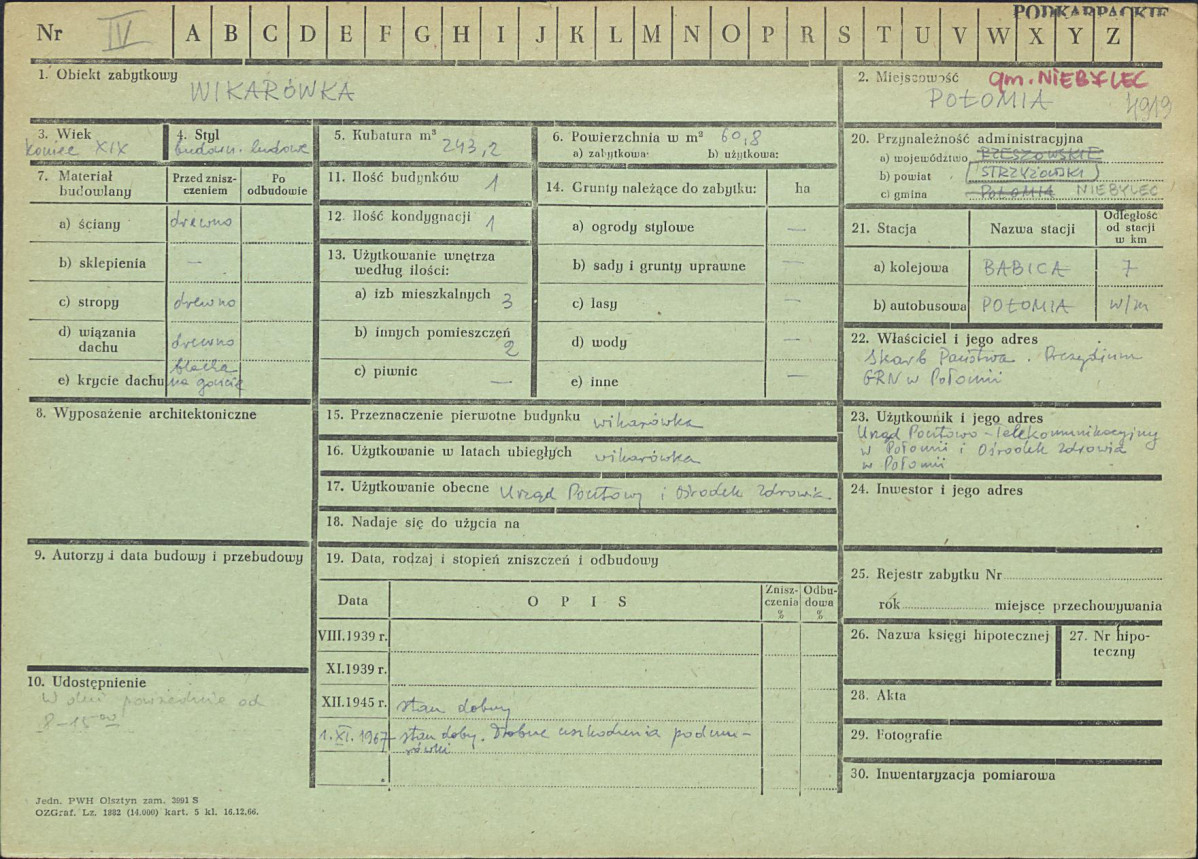 PODKARPACKIE
Nr IV A B C D E F G H I J K L M N O P R S T U V W X Y Z
1. Obiekt zabytkowy
WIKARÓWKA
2. Miejscowość gm. NIEBYLEC
POŁOMIA 4919
3. Wiek
koniec XIX
4. Styl
budown. ludowe
5. Kubatura m³ 243,2
6. Powierzchnia w m² 60,8
a) zabytkowa: b) użytkowa:
7. Materiał budowlany
Przed zniszczeniem
Po odbudowie
a) ściany drewno
b) sklepienia —
c) stropy drewno
d) wiązania dachu drewno
e) krycie dachu blacha na goncie
8. Wyposażenie architektoniczne
9. Autorzy i data budowy i przebudowy
10. Udostępnienie
W dni powszednie od
8-15⁰⁰
11. Ilość budynków 1
12. Ilość kondygnacji 1
13. Użytkowanie wnętrza
według ilości:
a) izb mieszkalnych 3
b) innych pomieszczeń 2
c) piwnic —
14. Grunty należące do zabytku: ha
a) ogrody stylowe —
b) sady i grunty uprawne —
c) lasy —
d) wody —
e) inne —
15. Przeznaczenie pierwotne budynku wikarówka
16. Użytkowanie w latach ubiegłych wikarówka
17. Użytkowanie obecne Urząd Pocztowy i Ośrodek Zdrowia
18. Nadaje się do użycia na
19. Data, rodzaj i stopień zniszczeń i odbudowy
Data OPIS Zniszczenia % Odbudowa %
VIII.1939 r.
XI.1939 r.
XII.1945 r. stan dobry
1.XI.1967 stan dobry. Drobne uszkodzenia podmu-
rówki
20. Przynależność administracyjna
a) województwo RZESZOWSKIE
b) powiat (STRZYŻOWSKI)
c) gmina POŁOMIA NIEBYLEC
21. Stacja Nazwa stacji Odległość od stacji w km
a) kolejowa BABICA 7
b) autobusowa POŁOMIA w/m
22. Właściciel i jego adres
Skarb Państwa. Prezydium
GRN w Połomii
23. Użytkownik i jego adres
Urząd Pocztowo-Telekomunikacyjny
w Połomii i Ośrodek Zdrowia
w Połomii
24. Inwestor i jego adres
25. Rejestr zabytku Nr
rok miejsce przechowywania
26. Nazwa księgi hipotecznej
27. Nr hipo-
teczny
28. Akta
29. Fotografie
30. Inwentaryzacja pomiarowa
Jedn. PWH Olsztyn zam. 3991 S
OZGraf. Lz. 1882 (14.000) kart. 5 kl. 16.12.66.